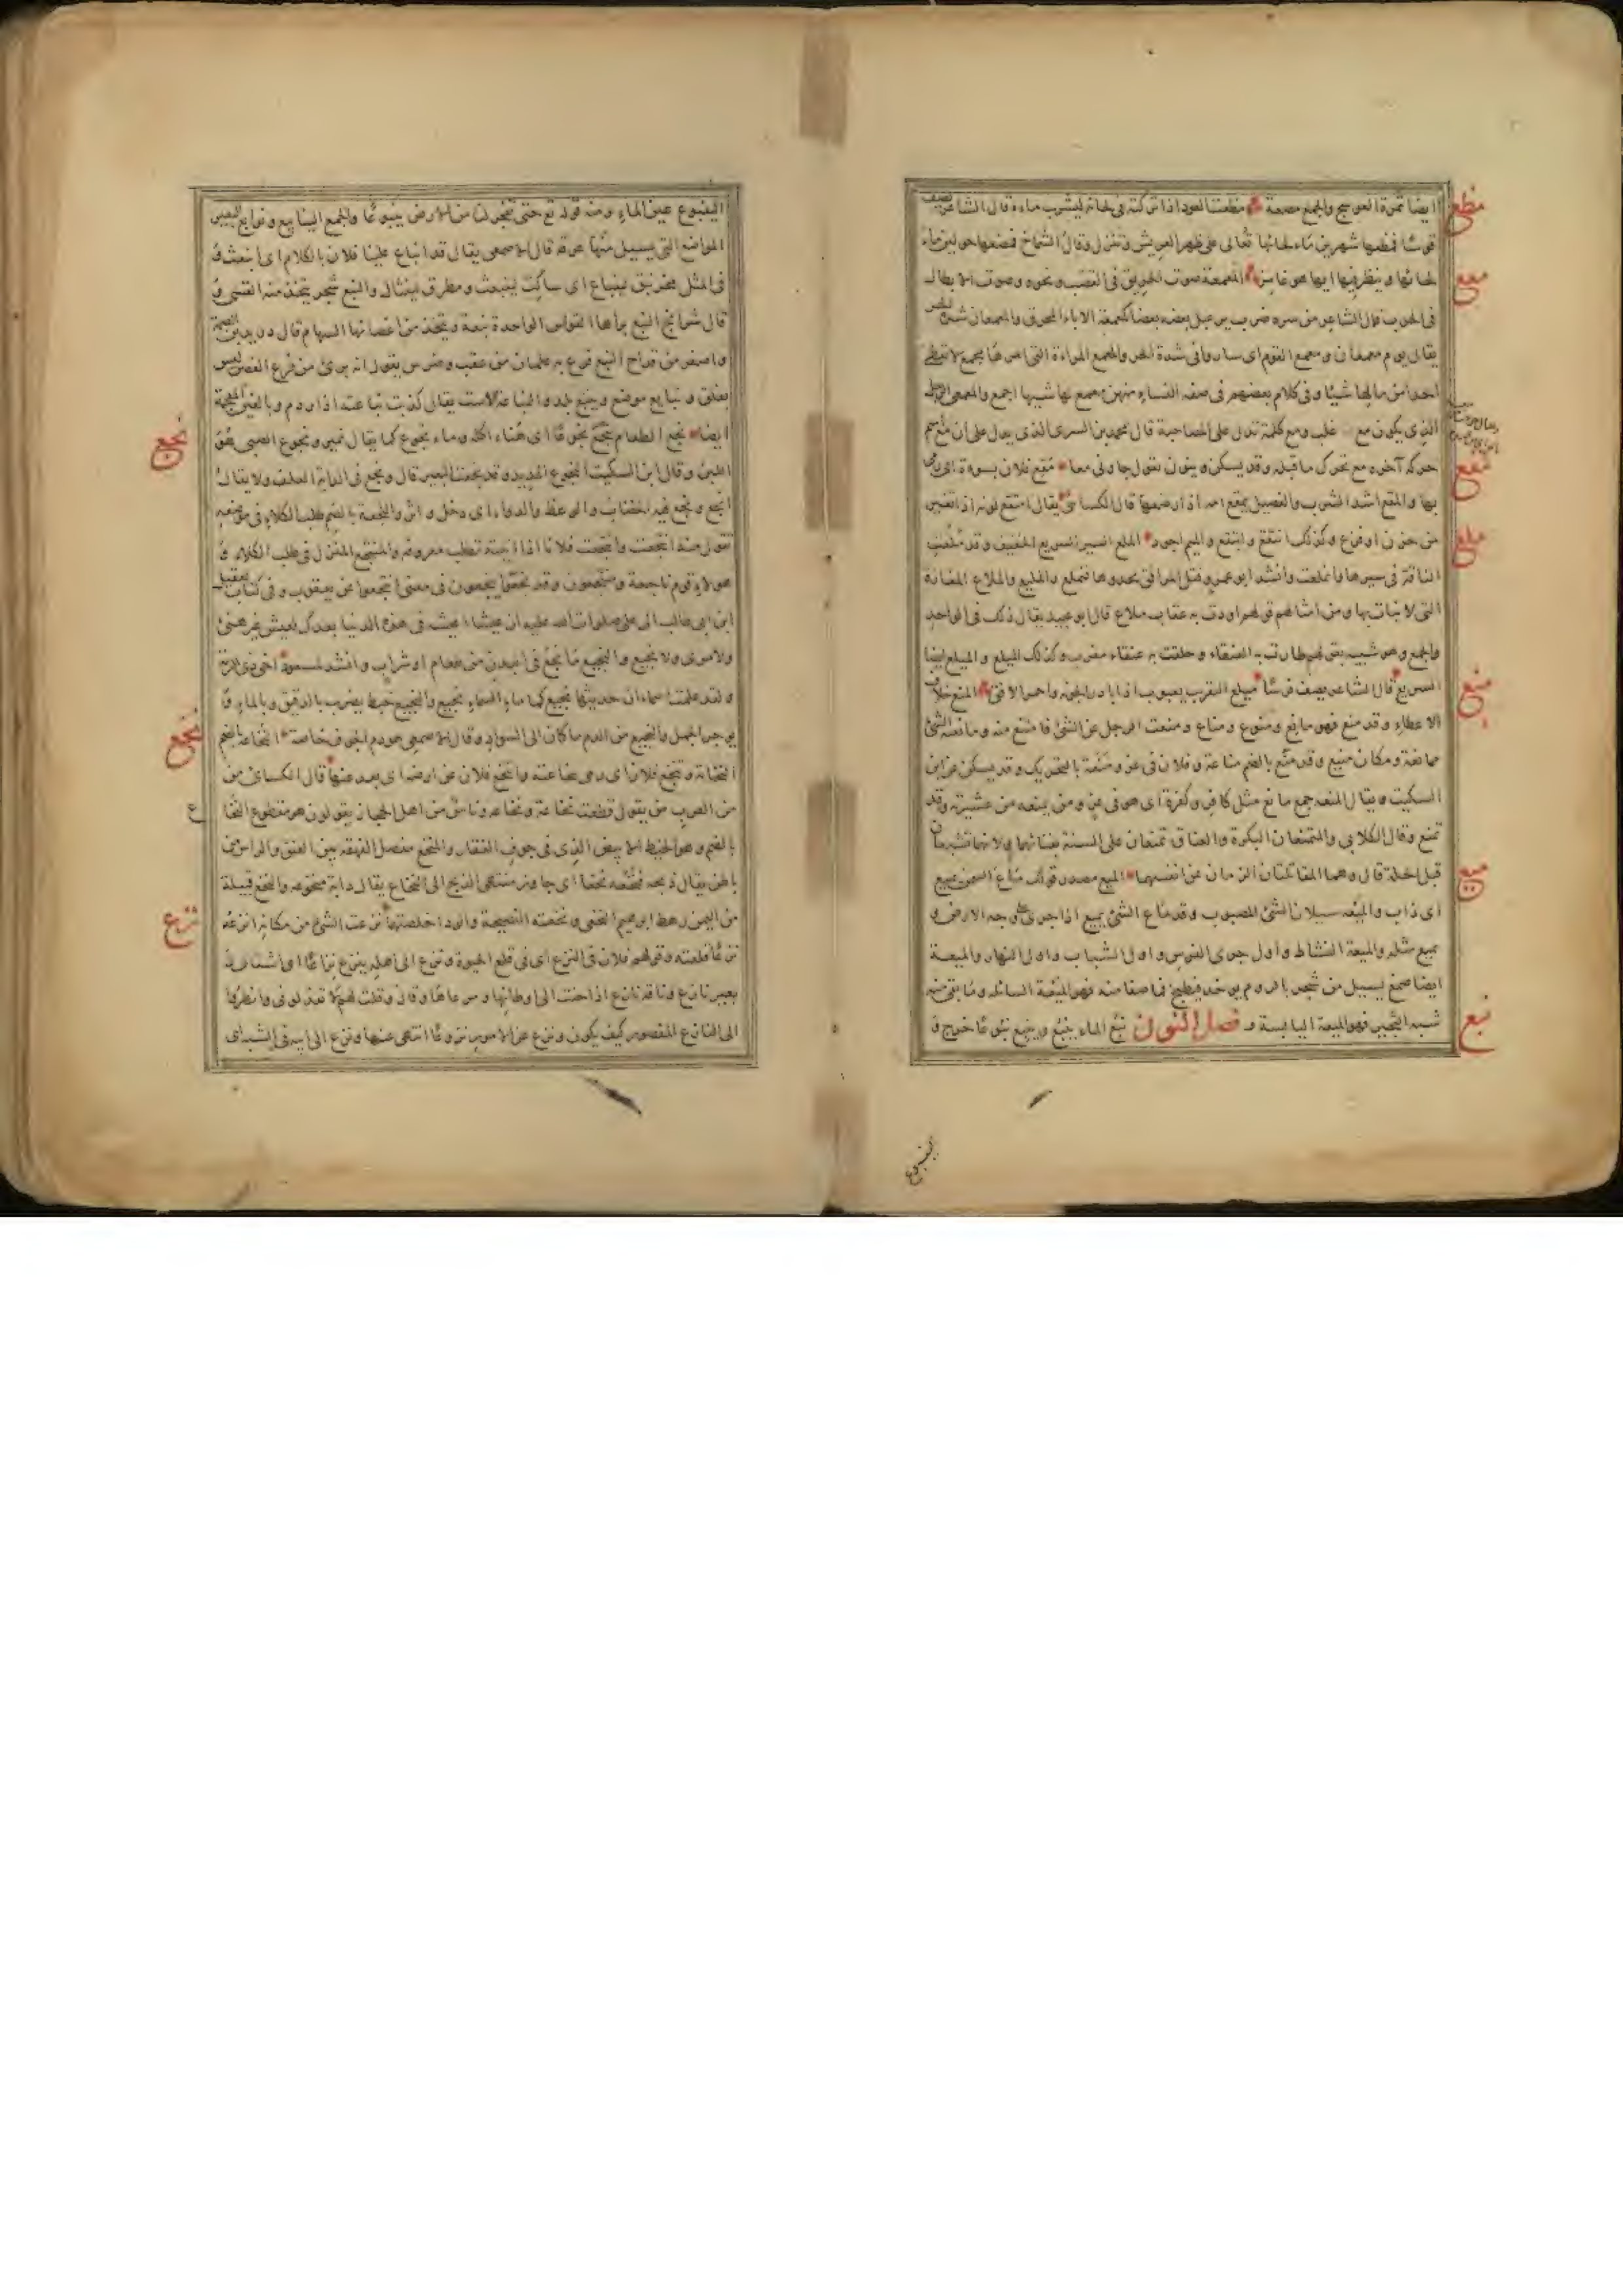 ايضا ثمرة العوسج والجمع مصعة مظعت العود اذا تركته فى لحائه ليشرب ماءه قال الشاعر يصف
قوسا فمظعها شهرين ماء لحائها تعالى على ظهر العريش وتنزل وقال الشماخ فمظعها حولين ماء
لحائها وينظر فيها ايها هو غامز المعمعة صوت الحريق فى القصب ونحوه وصوت الابطال
فى الحرب قال الشاعر من سره ضرب يرعبل بعضه بعضا كمعمعة الاباء المحرق والمعمعان شدة الحر
يقال يوم معمعان ومعمع القوم اى ساروا فى شدة الحر والمعمع المراءة التى امرها مجمع لا تعطى
احدا من مالها شيئا وفى كلام بعضهم فى صفة النساء منهن معمع لها شيبها اجمع والمعمعى الرجل
الذى يكون مع غلب ومع كلمة تدل على المصاحبة قال محمد بن السرى الذى يدل على ان مع اسم
حركة آخره مع تحرك ما قبله وقد يسكن وينون تقول جاونى معا مقع فلان بسوءة اى رمى
بها والمقع اشد الشرب والفصيل يمقع امه اذا رضعها قال الكسائى يقال امتقع لونه اذا تغير
من حزن او فزع وكذلك انتقع وابتقع والميم اجود الملع السير السريع الخفيف وقد ملعت
الناقة فى سيرها وانملعت وانشد ابو عمرو فتل المرافق يحدوها فتملع والمليع والملاع المفازة
التى لا نبات بها ومن امثالهم قولهم اودت به عقاب ملاع قال ابو عبيد يقال ذلك فى الواحد
والجمع وهو شبيه بقولهم طارت به العنقاء وحلقت به عنقاء مغرب وكذلك الميلع والميلع ايضا
السريع قال الشاعر يصف فرسا ميلع التقريب يعبوب اذا بادر الجونة واحمر الافق المنع خلاف
الاعطاء وقد منع فهو مانع ومنوع ومناع ومنعت الرجل عن الشئ فامتنع منه ومانعته الشئ
ممانعة ومكان منيع وقد منع بالضم مناعة وفلان فى عز ومنعة بالتحريك وقد يسكن عن ابن
السكيت ويقال المنعة جمع مانع مثل كافر وكفرة اى هو فى عز ومن يمنعه من عشيرته وقد
تمنع وقال الكلابى والمتمنعان البكرة والعناق تمتنعان على السنة بفنائهما ولانهما تشبعان
قبل الجلة قال وهما المقاتلتان الزمان عن انفسهما الميع مصدر قولك ماع السمن يميع
اى ذاب والميعة سيلان الشئ المصبوب وقد ماع الشئ يميع اذا جرى على وجه الارض و
تميع مثله والميعة النشاط واول جرى الفرس واول الشباب واول النهار والميعة
ايضا صمغ يسيل من شجر بالروم يوخذ فيطبخ فما صفا منه فهو الميعة السائلة وما بقى منه
شبه الثجير فهو الميعة اليابسة فصل النون نبع الماء ينبع وينبع نبوعا خرج و
مظع
مع
مقع
ملع
منع
ميع
نبع
الينبوع
الينبوع عين الماء ومنه قوله تع حتى تفجر لنا من الارض ينبوعا والجمع الينابيع ونوابع البعير
المواضع التى يسيل منها عرقه قال الاصمعى يقال قد انباع علينا فلان بالكلام اى انبعث و
فى المثل مخرنبق لينباع اى ساكت لينبعث ومطرق لينثال والنبع شجر يتخذ منه القسى و
قال شرايج النبع براها القواس الواحدة نبعة ويتخذ من اغصانها السهام قال دريد بن الصمة
واصفر من قداح النبع فرع به علمان من عقب وضرس يقول انه برى من فرع الغصن ليس
بفلق ونبايع موضع وينبع بلد والنباعة الاست يقال كذبت نباعته اذا ردم وبالغين المعجمة
ايضا نجع الطعام ينجع نجوعا اى هناء اكله وماء نجوع كما يقال نمير ونجوع الصبى هو
اللبن وقال ابن السكيت النجوع المديد وقد نجعت البعير قال ونجع فى الدابة العلف ولا يقال
انجع ونجع فيه الخطاب والوعظ والدواء اى دخل واثر والنجعة بالضم طلب الكلاء فى موضعه
تقول منه انتجعت وانتجعت فلانا اذا اتيته تطلب معروفه والمنتجع المنزل فى طلب الكلاء و
هولاء قوم ناجعة ومنتجعون وقد نجعوا ينجعون فى معنى انتجعوا عن يعقوب وفى كتاب عقيل
ابن ابى طالب الى على صلوات الله عليه
ولا مروى ولا نجيع والنجيع ما نجع فى البدن من طعام او شراب وانشد لمسعود اخى ذى الرمة
وقد علمت اسماء ان حديثها نجيع كما ماء السماء نجيع والنجيع خبط يضرب بالدقيق وبالماء و
يوجر الجمل والنجيع من الدم ما كان الى السواد وقال الاصمعى هو دم الجوف خاصة النخاعة بالضم
النخامة وتنخع فلان اى رمى بنخاعته وانتخع فلان عن ارضه اى بعد عنها قال الكسائى من
من العرب من يقول قطعت نخاعه ونخاعه وناس من اهل الحجاز يقولون هو مقطوع النخاع
بالضم وهو الخيط الابيض الذى فى جوف الفقار والمنخع مفصل الفهقة بين العنق والراس من
باطن يقال ذبحه فنخعه نخعا اى جاوز منتهى الذبح الى النخاع يقال دابة منخوعة والنخع قبيلة
من اليمن رهط ابرهيم النخعى ونخعته النصيحة والود اخلصتهما نزعت الشئ من مكانه انزعه
نزعا قلعته وقولهم فلان فى النزع اى فى قلع الحيوة ونزع الى اهله ينزع نزاعا اى اشتاق
بعير نازع وناقة نازع اذا حنت الى اوطانها ومرعاها وقال وقلت لهم لا تعذلونى وانظروا
الى النازع المقصور كيف يكون ونزع عن الامور نزوعا انتهى عنها ونزع الى ابيه فى الشبه اى
نجع
نخع
ع
نزع